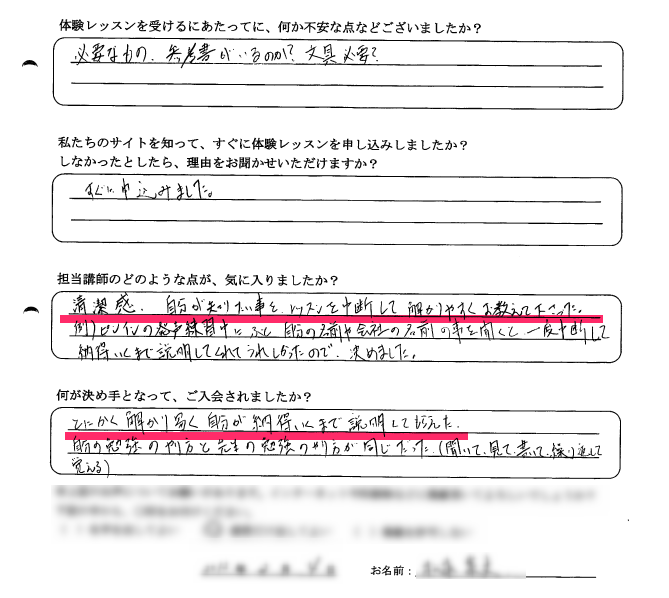 体験レッスンを受けるにあたってに、何か不安な点などございましたか？
必要なもの、参考書がいるのか？文具必要？
私たちのサイトを知って、すぐに体験レッスンを申し込みしましたか？
しなかったとしたら、理由をお聞かせいただけますか？
すぐに申込みました。
担当講師のどのような点が、気に入りましたか？
清潔感、自分が知りたい事を、レッスンを中断して解かりやすくお教えて下さった。
例)ピンインの発声練習中にふと自分の名前や会社の名前の事を聞くと一度中断して
納得いくまで説明してくれてうれしかったので、決めました。
何が決め手となって、ご入会されましたか？
とにかく解かり易く自分が納得いくまで説明して貰えた。
自分の勉強のやり方と先生の勉強のやり方が同じだった。(聞いて、見て、書いて、繰り返して
覚える)
お名前：